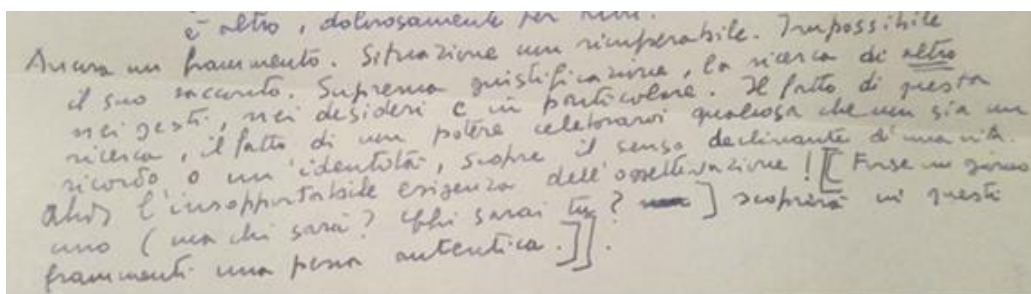 è altro, dolorosamente per
Ancora un frammento. Situazione non recuperabile. Impossibile
il suo racconto. Suprema giustificazione, la ricerca di altro
nei gesti, nei desideri e in particolare. Il fatto di questa
ricerca, il fatto di non potere celebrarvi qualcosa che non sia un
ricordo o un'identità, scopre il senso declinante d'una vita.
l'insopportabile esigenza dell'osservazione! [[Forse un giorno
uno (ma chi sarà? Chi sarai tu? ] scoprirà in questi
frammenti una pena autentica.]].